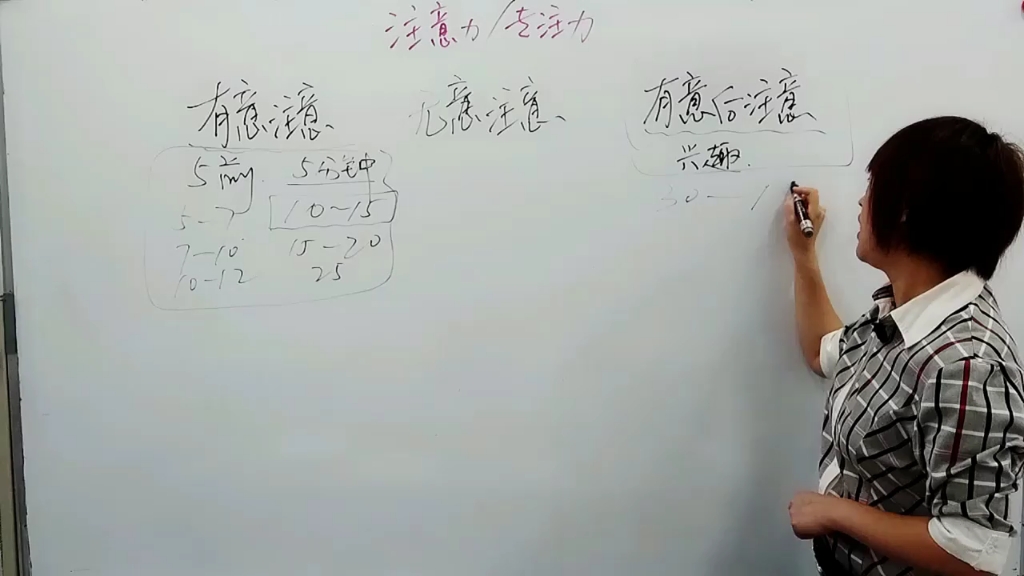 注意力/专注力
有意注意、 无意注意、 有意后注意
5岁前 5分钟 兴趣.
5-7 10~15 30—1
7-10 15-20
10-12 25